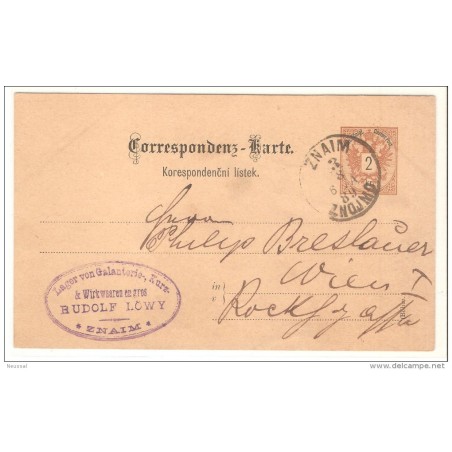 Correspondenz-Karte.
Korespondenční lístek.
ZNAIM
ZNOJMO
2
Herrn
Philip Breslauer
in
Wien I
v
Lager von Galanterie-, Kurz-
& Wirkwaaren en gros
RUDOLF LÖWY
* ZNAIM *
Neussal
delcampe.net